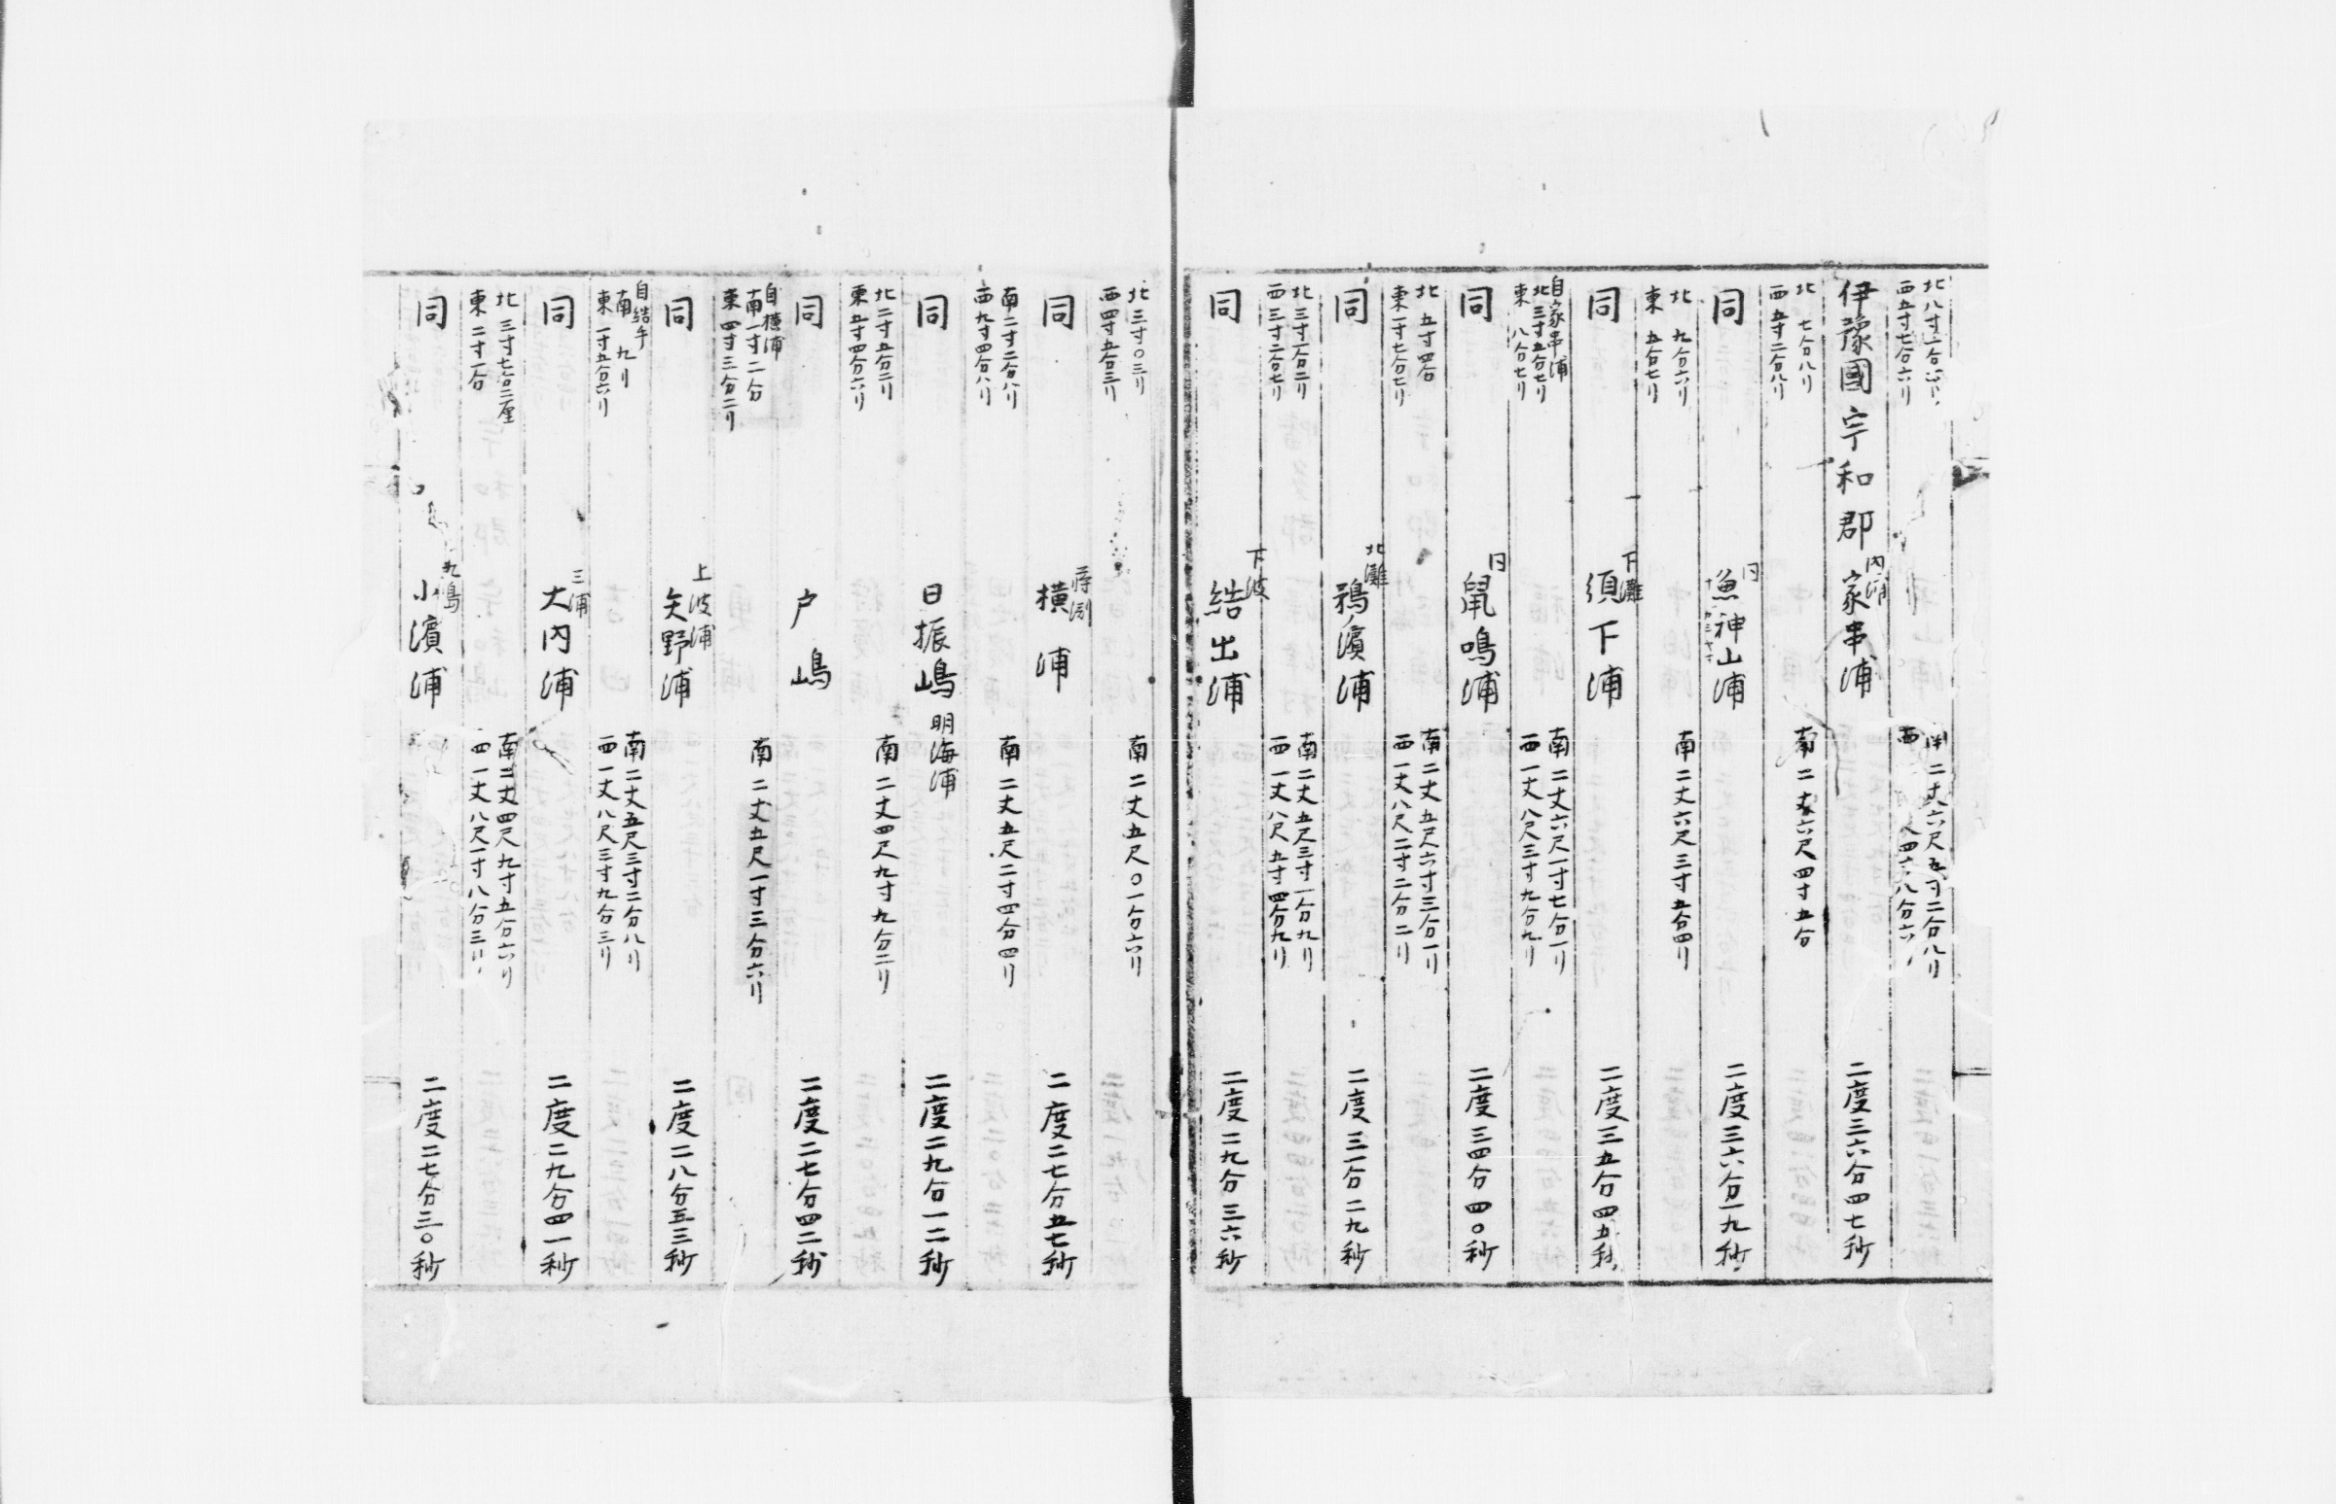 北八寸一分
西五寸七分六リ
南二丈六尺五寸二分八リ
西
伊豫國宇和郡 内海 家串浦 二度三六分四七秒
北 七分八リ
西五寸二分八リ
南二丈六尺四寸五分
同 同 魚神山浦 二度三六分一九秒
北 九分六リ
東 五分七リ
南二丈六尺三寸五分四リ
同 下灘 須下浦 二度三五分四五秒
自家串浦
北三寸五分七リ
東 八分七リ
南二丈六尺一寸七分一リ
西一丈八尺三寸九分九リ
同 同 鼠鳴浦 二度三四分四〇秒
北 五寸四分
東一寸七分七リ
南二丈五尺六寸三分一リ
西一丈八尺二寸二分二リ
同 北灘 鵜濱浦 二度三一分二九秒
北三寸一分二リ
西三寸二分七リ
南二丈五尺三寸一分九リ
西一丈八尺五寸四分九リ
同 下波 結出浦 二度二九分三六秒
北三寸〇三リ
西四寸五分三リ
南二丈五尺〇一分六リ
同 蒋渕 横浦 二度二七分五七秒
南二寸二分八リ
西九寸四分八リ
南二丈五尺二寸四分四リ
同 日振嶋 明海浦 二度二九分一二秒
北二寸五分二リ
東五寸四分六リ
南二丈四尺九寸九分二リ
同 戸嶋 二度二七分四二秒
自横浦
南一寸一二分
東四寸三分二リ
南二丈五尺一寸三分六リ
同 上波浦 矢野浦 二度二八分五三秒
自結手
南 九リ
東一寸五分六リ
南二丈五尺三寸二分八リ
西一丈八尺三寸九分三リ
同 三浦 大内浦 二度二九分四一秒
北三寸七分二厘
東二寸一分
南二丈四尺九寸五分六リ
西一丈八尺一寸八分三リ
同 九嶋 小濱浦 二度二七分三〇秒